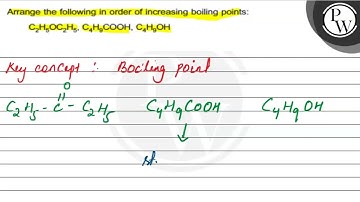 Arrange the following in order of increasing boiling points:
C₂H₅OC₂H₅, C₄H₉COOH, C₄H₉OH
PW
Key concept :- Boiling point
O
C₂H₅ - C - C₂H₅ C₄H₉COOH C₄H₉OH